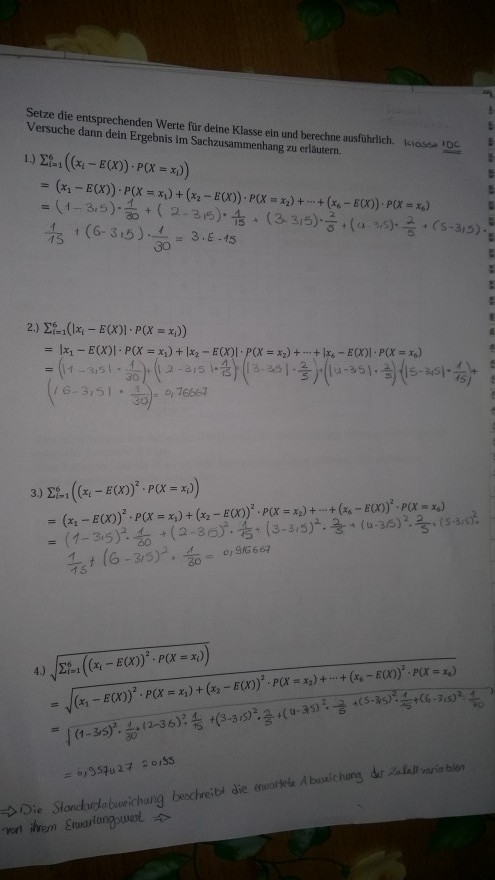 Setze die entsprechenden Werte für deine Klasse ein und berechne ausführlich. Klasse 10c
Versuche dann dein Ergebnis im Sachzusammenhang zu erläutern.
1.) ∑⁶ᵢ₌₁((xᵢ − E(X)) · P(X = xᵢ))
= (x₁ − E(X)) · P(X = x₁) + (x₂ − E(X)) · P(X = x₂) + ⋯ + (x₆ − E(X)) · P(X = x₆)
= (1 − 3,5) · 1/30 + (2 − 3,5) · 1/15 + (3 − 3,5) · 2/5 + (4 − 3,5) · 2/5 + (5 − 3,5) ·
1/15 + (6 − 3,5) · 1/30 = 3 · E - 15
2.) ∑⁶ᵢ₌₁(|xᵢ − E(X)| · P(X = xᵢ))
= |x₁ − E(X)| · P(X = x₁) + |x₂ − E(X)| · P(X = x₂) + ⋯ + |x₆ − E(X)| · P(X = x₆)
= (|1 − 3,5| · 1/30) + (|2 − 3,5| · 1/15) + (|3 − 3,5| · 2/5) + (|4 − 3,5| · 2/5) + (|5 − 3,5| · 1/15) +
(|6 − 3,5| · 1/30) = 0,76667
3.) ∑⁶ᵢ₌₁((xᵢ − E(X))² · P(X = xᵢ))
= (x₁ − E(X))² · P(X = x₁) + (x₂ − E(X))² · P(X = x₂) + ⋯ + (x₆ − E(X))² · P(X = x₆)
= (1 − 3,5)² · 1/30 + (2 − 3,5)² · 1/15 + (3 − 3,5)² · 2/5 + (4 − 3,5)² · 2/5 + (5 − 3,5)² ·
1/15 + (6 − 3,5)² · 1/30 = 0,916667
4.) √(∑⁶ᵢ₌₁((xᵢ − E(X))² · P(X = xᵢ)))
= √((x₁ − E(X))² · P(X = x₁) + (x₂ − E(X))² · P(X = x₂) + ⋯ + (x₆ − E(X))² · P(X = x₆))
= √((1 − 3,5)² · 1/30 + (2 − 3,5)² · 1/15 + (3 − 3,5)² · 2/5 + (4 − 3,5)² · 2/5 + (5 − 3,5)² · 1/15 + (6 − 3,5)² · 1/30)
= 0,957427
⇒ Die Standardabweichung beschreibt die erwartete Abweichung der Zufallsvariablen
von ihrem Erwartungswert ⇒